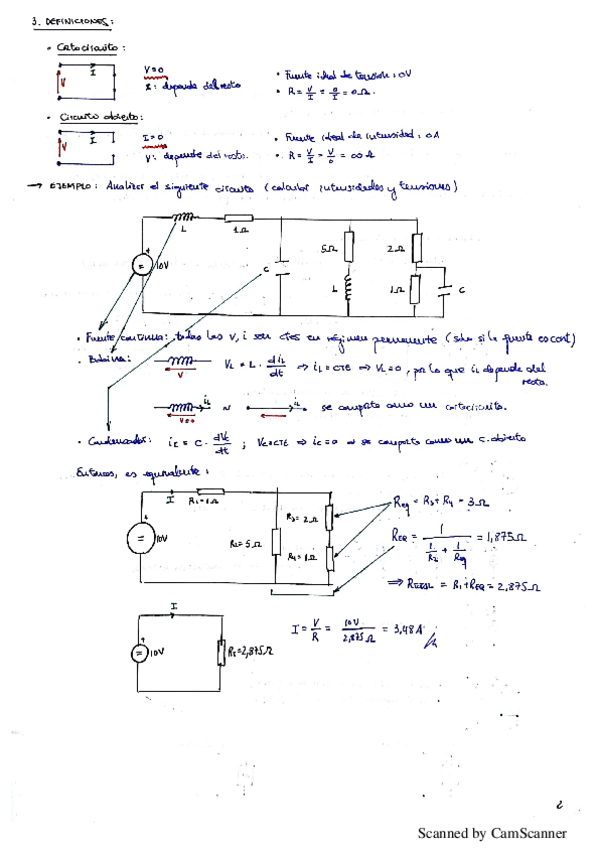 3. DEFINICIONES:
· Cortocircuito:
I
V
V=0
I: depende del resto
· Fuente ideal de tensión: 0V
· R = V/I = 0/I = 0Ω.
· Circuito abierto:
I
V
I=0
V: depende del resto.
· Fuente ideal de intensidad: 0A
· R = V/I = V/0 = ∞Ω
→ EJEMPLO: Analizar el siguiente circuito (calcular intensidades y tensiones)
L
1Ω
5Ω
2Ω
+
=
10V
C
L
1Ω
C
· Fuente continua: todas las v, i son ctes en régimen permanente (solo si la fuente es cont)
· Bobina:
V
VL = L · diL/dt ⇒ iL = CTE ⇒ VL=0, por lo que iL depende del
resto.
iL
V=0
~
iL
se comporta como un cortocircuito.
· Condensador: ic = C · dVc/dt ; Vc=CTE ⇒ ic=0 ⇒ se comporta como un c. abierto
Entonces, es equivalente:
I
R1=1Ω
R3=2Ω
Req = R3+R4 = 3Ω
+
=
10V
R2=5Ω
R4=1Ω
REQ = 1 / (1/R2 + 1/Req) = 1,875Ω
⇒ RTOTAL = R1+REQ = 2,875Ω
I
+
=
10V
RT=2,875Ω
I = V/R = 10V/2,875Ω = 3,48A
Scanned by CamScanner